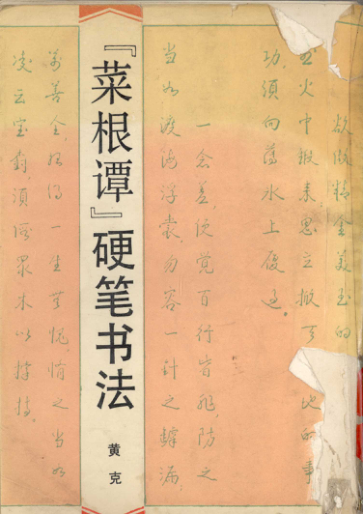 欲做精金美玉的
火中锻来思立掀天 地的事
功,须向薄冰上履过。
一念差,便觉百行皆非,防之
当如渡海浮囊,勿容一针之罅漏
『菜根谭』硬笔书法
黄克
萬善全,始得一生无愧,修之当如
凌云宝树,须假众木以撑持。